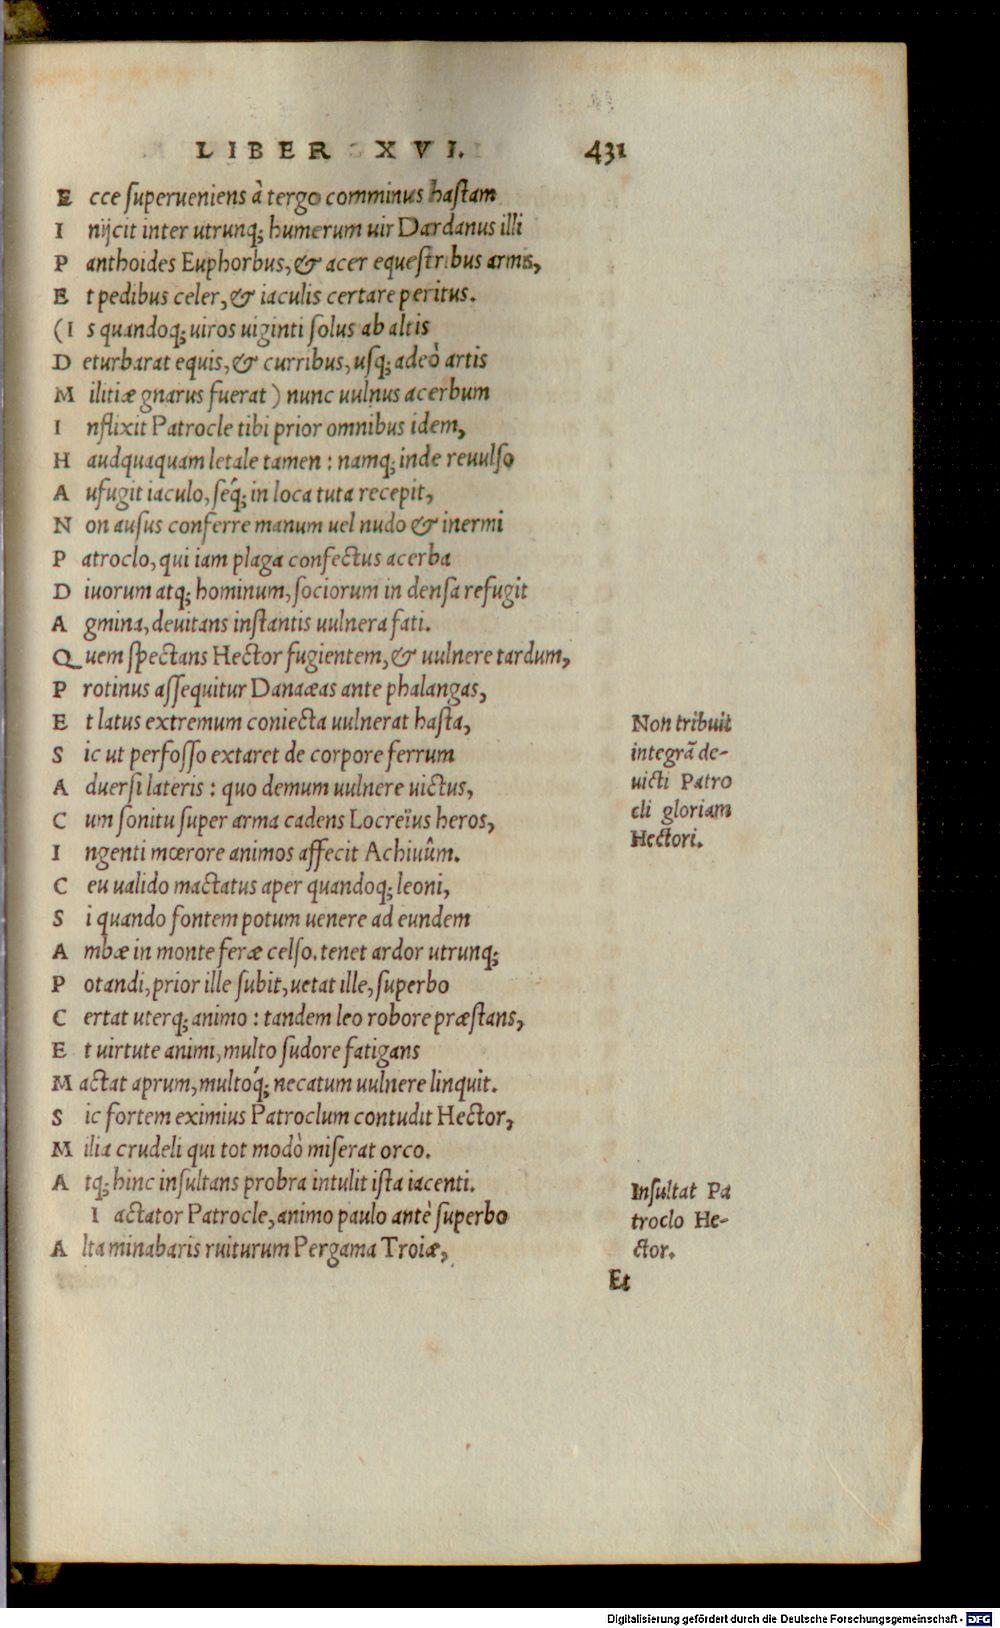 LIBER XVI. 431
E cce ſuperueniens à tergo comminus haſtam
I nijcit inter utrunq; humerum uir Dardanus illi
P anthoides Euphorbus, & acer equeſtribus armis,
E t pedibus celer, & iaculis certare peritus.
(I s quandoq; uiros uiginti ſolus ab altis
D eturbarat equis, & curribus, uſq; adeò artis
M ilitiæ gnarus fuerat) nunc uulnus acerbum
I nflixit Patrocle tibi prior omnibus idem,
H audquaquam letale tamen: namq; inde reuulſo
A ufugit iaculo, ſeq́; in loca tuta recepit,
N on auſus conferre manum uel nudo & inermi
P atroclo, qui iam plaga confectus acerba
D iuorum atq; hominum, ſociorum in denſa refugit
A gmina, deuitans inſtantis uulnera fati.
Q uem ſpectans Hector fugientem, & uulnere tardum,
P rotinus aſſequitur Danaæas ante phalangas,
E t latus extremum coniecta uulnerat haſta,
S ic ut perfoſſo extaret de corpore ferrum
A duerſi lateris: quo demum uulnere uictus,
C um ſonitu ſuper arma cadens Locreïus heros,
I ngenti mœrore animos affecit Achiuûm.
C eu ualido mactatus aper quandoq; leoni,
S i quando fontem potum uenere ad eundem
A mbæ in monte feræ celſo. tenet ardor utrunq;
P otandi, prior ille ſubit, uetat ille, ſuperbo
C ertat uterq; animo: tandem leo robore præſtans,
E t uirtute animi, multo ſudore fatigans
M actat aprum, multoq́; necatum uulnere linquit.
S ic fortem eximius Patroclum contudit Hector,
M ilia crudeli qui tot modò miſerat orco.
A tq; hinc inſultans probra intulit iſta iacenti.
I actator Patrocle, animo paulo antè ſuperbo
A lta minabaris ruiturum Pergama Troiæ,
Non tribuit
integrã de-
uicti Patro
cli gloriam
Hectori.
Inſultat Pa
troclo He-
ctor.
Et
Digitalisierung gefördert durch die Deutsche Forschungsgemeinschaft - DFG